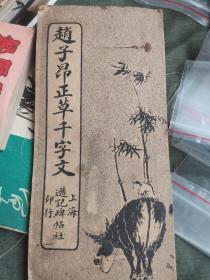 趙子昂正草千字文
上海
遊記碑帖社
印行